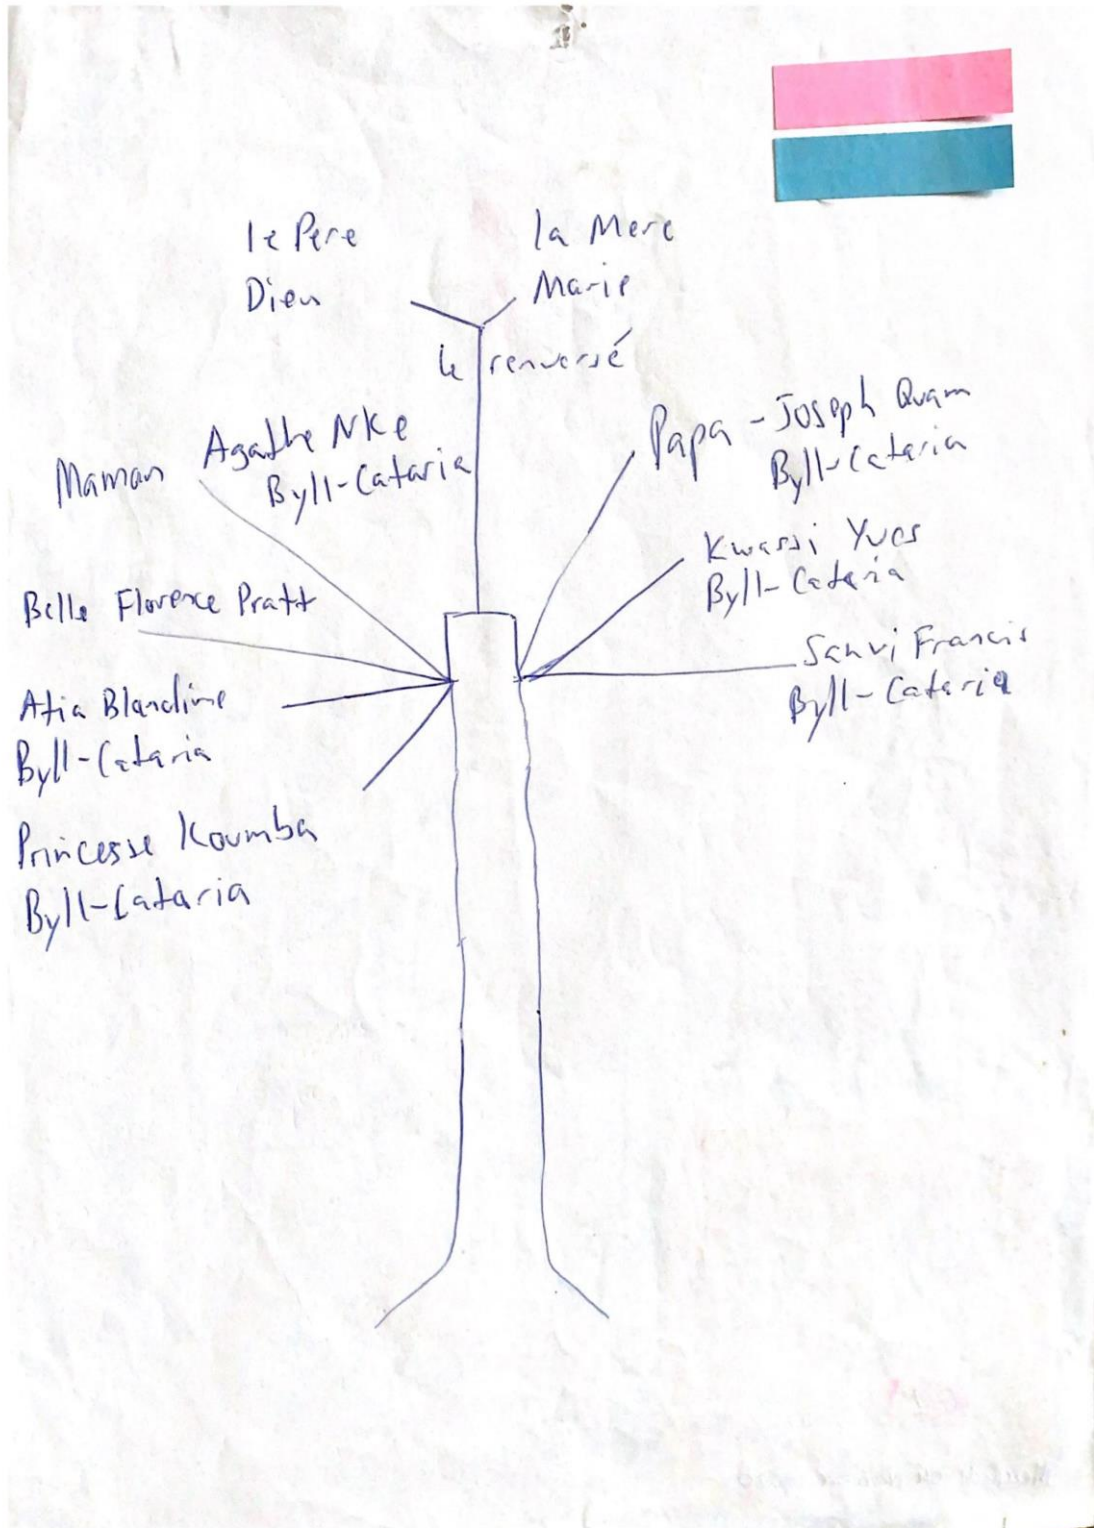 le Pere
Dieu
la Mere
Marie
le renversé
Maman Agathe Nke
Byll-Cataria
Papa - Joseph Quam
Byll-Cataria
Kwassi Yves
Byll-Cataria
Belle Florence Pratt
Sanvi Francis
Byll-Cataria
Afia Blandine
Byll-Cataria
Princesse Koumba
Byll-Cataria